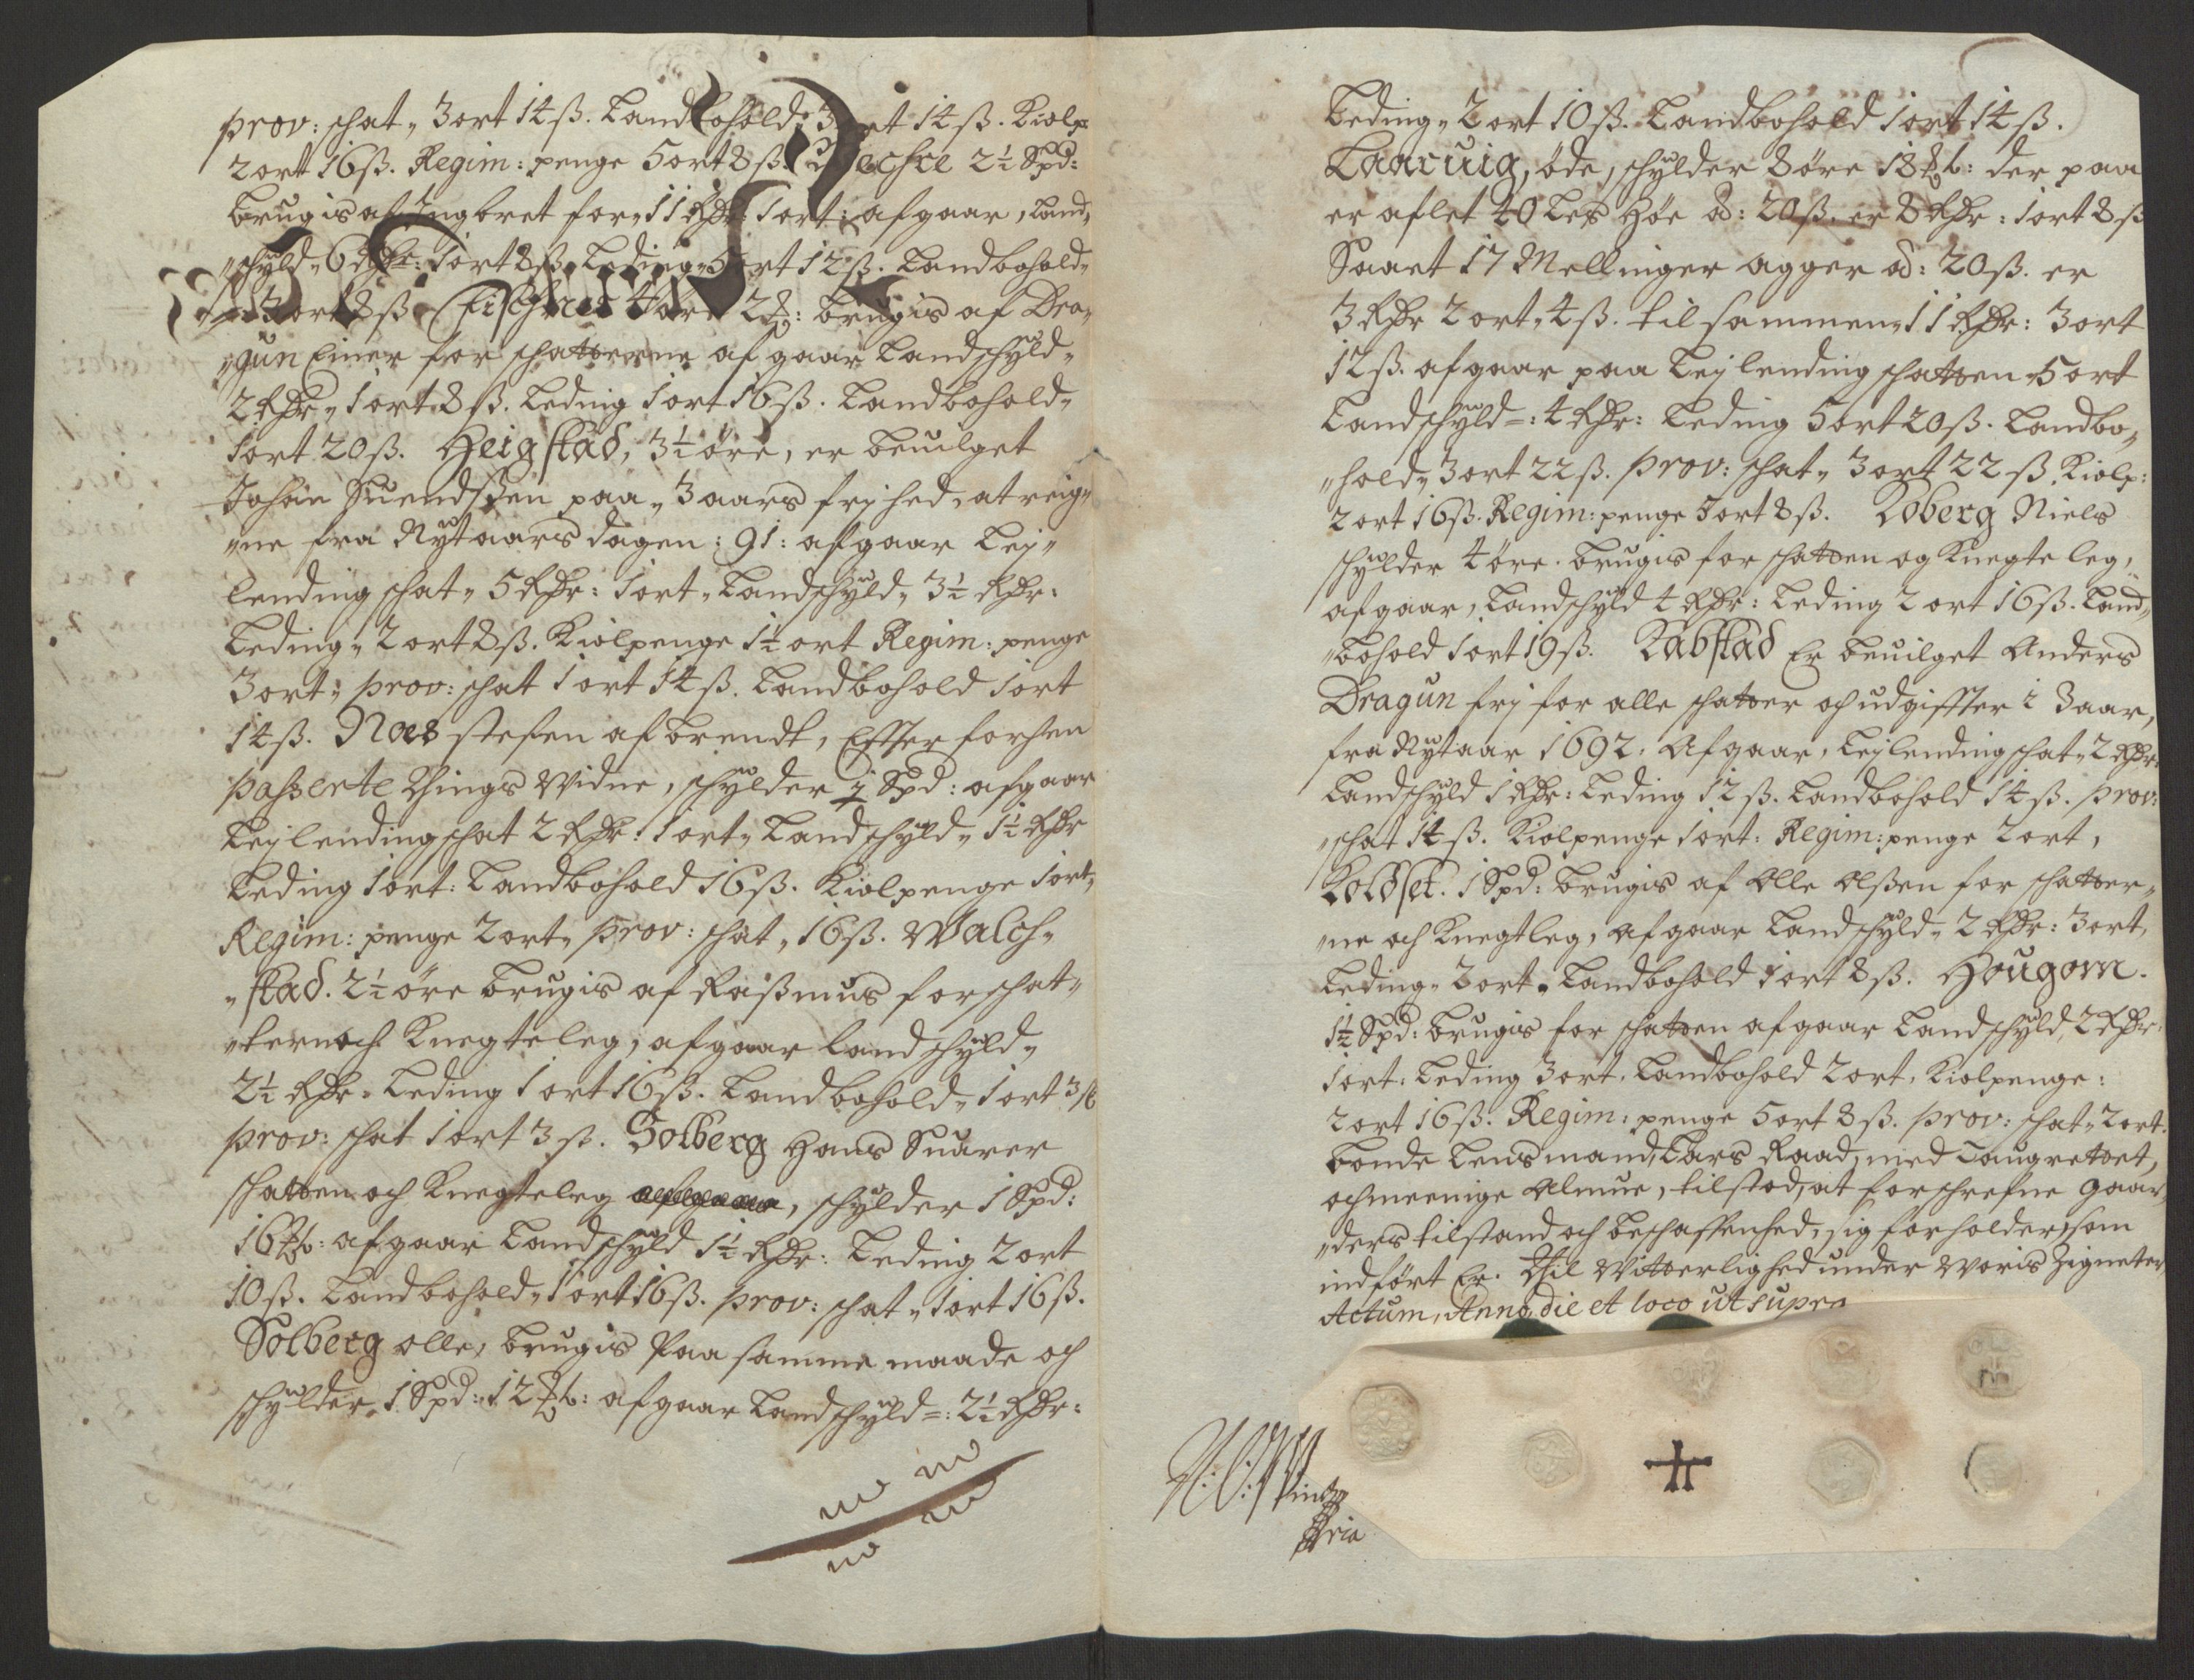 prov: schat„ 3 ort 14 ß. Landbohold„ 3 ort 14 ß. Kiolp
2 ort 16 ß. Regim: penge 5 ort 8 ß. 2½ Spd:
brugis af Ingbret for„ 11 Rdr: 1 ort: afgaar, Land„
„schyld„ 6 Rdr: 1 ort 8 ß. Leding„ 5 ort 12 ß. Landbohold„
3 ort 8 ß. brugis af Dra„
„gun Einer for schatterne afgaar Landschyld„
2 Rdr„ 1 ort 8 ß. Leding 1 ort 16 ß. Landbohold„
1 ort 20 ß. Heigstad, 3½ øre, er beuilget
Johan Suendsen paa„ 3 aars frihed, at reig„
„ne fra Nytaarsdagen: 91: afgaar Lej„
lendingschat„ 5 Rdr: 1 ort„ Landschyld„ 3½ Rdr:
Leding„ 2 ort 8 ß. Kiolpenge 1½ ort Regim: penge
3 ort„ prov: schat 1 ort 14 ß. Landbohold 1 ort
14 ß. Næs stefen afbrendt, Effter forhen
passerte Tings Vidne, schylder ½ Spd: afgaar
Lejlendingschat 2 Rdr: 1 ort„ Landschyld„ 1½ Rdr
Leding 1 ort: Landbohold 16 ß. Kiolpenge 1 ort„
Regim: penge 2 ort„ prov: schat„ 16 ß. Walch„
„stad. 2½ øre brugis af Rasmus for schat„
„ternoch Knegteleg, afgaar Landschyld„
2½ Rdr„ Leding 1 ort 16 ß. Landbohold„ 1 ort 3 ß
prov: schat 1 ort 3 ß. Solberg Hans Suarer
schatten och Knegteleg, schylder 1 Spd:
16 : afgaar Landschyld 1½ Rdr: Leding 2 ort
10 ß. Landbohold„ 1 ort 16 ß. prov: schat„ 1 ort 16 ß.
Solberg olle, brugis Paa samme maade och
schylder 1 Spd: 12 : afgaar Landschyld=: 2½ Rdr:
Leding„ 2 ort 10 ß. Landbohold 1 ort 14 ß.
Laaruig, øde, schylder 8 øre 18 : der paa
er aflet 40 Les Høe ad: 20 ß. er 8 Rdr: 1 ort 8 ß
Saaet 17 Mellinger agger ad: 20 ß. er
3 Rdr 2 ort„ 4 ß. til sammen„ 11 Rdr: 3 ort
12 ß. afgaar paa Lejlendingschatten 5 ort
Landschyld=: 4 Rdr: Leding 5 ort 20 ß. Landbo„
„hold„ 3 ort 22 ß. prov: schat„ 3 ort 22 ß Kiolp:
2 ort 16 ß. Regim: penge 5 ort 8 ß. Niels
schylder 4 øre. brugis for schatten og Knegteleg,
afgaar, Landschyld 4 Rdr: Leding 2 ort 16 ß. Land„
„bohold 1 ort 19 ß. Er beuilget Anders
Dragun fri for alle schatter och udgiffter i 3 aar,
fra Nytaar 1692. Afgaar, Lejlendingschat„ 2 Rdr:
Landschyld 1 Rdr: Leding 12 ß. Landbohold 14 ß. prov:
„schat 14 ß. Kiolpenge 1 ort: Regim: penge 2 ort,
1 Spd: brugis af Olle Olßen for schatter„
„ne och Knegtleg, afgaar Landschyld„ 2 Rdr: 3 ort,
Leding„ 3 ort„ Landbohold 1 ort 8 ß. Hougom.
1½ Spd: brugis for schatten afgaar Landschyld, 2 Rdr:
1 ort. Leding 3 ort. Landbohold 2 ort, Kiolpenge:
2 ort 16 ß. Regim: penge 5 ort 8 ß. prov: schat„ 2 ort.
Bonde Lensmand, Lars Raad, med Laugrettet,
och meenige Almue, tilstod, at forschrefne gaar„
„ders tilstand och beschaffenhed, sig forholder, som
indført Er. Til Vitterlighed under Voris Zigneter
Actum, Anno, die et loco ut supra